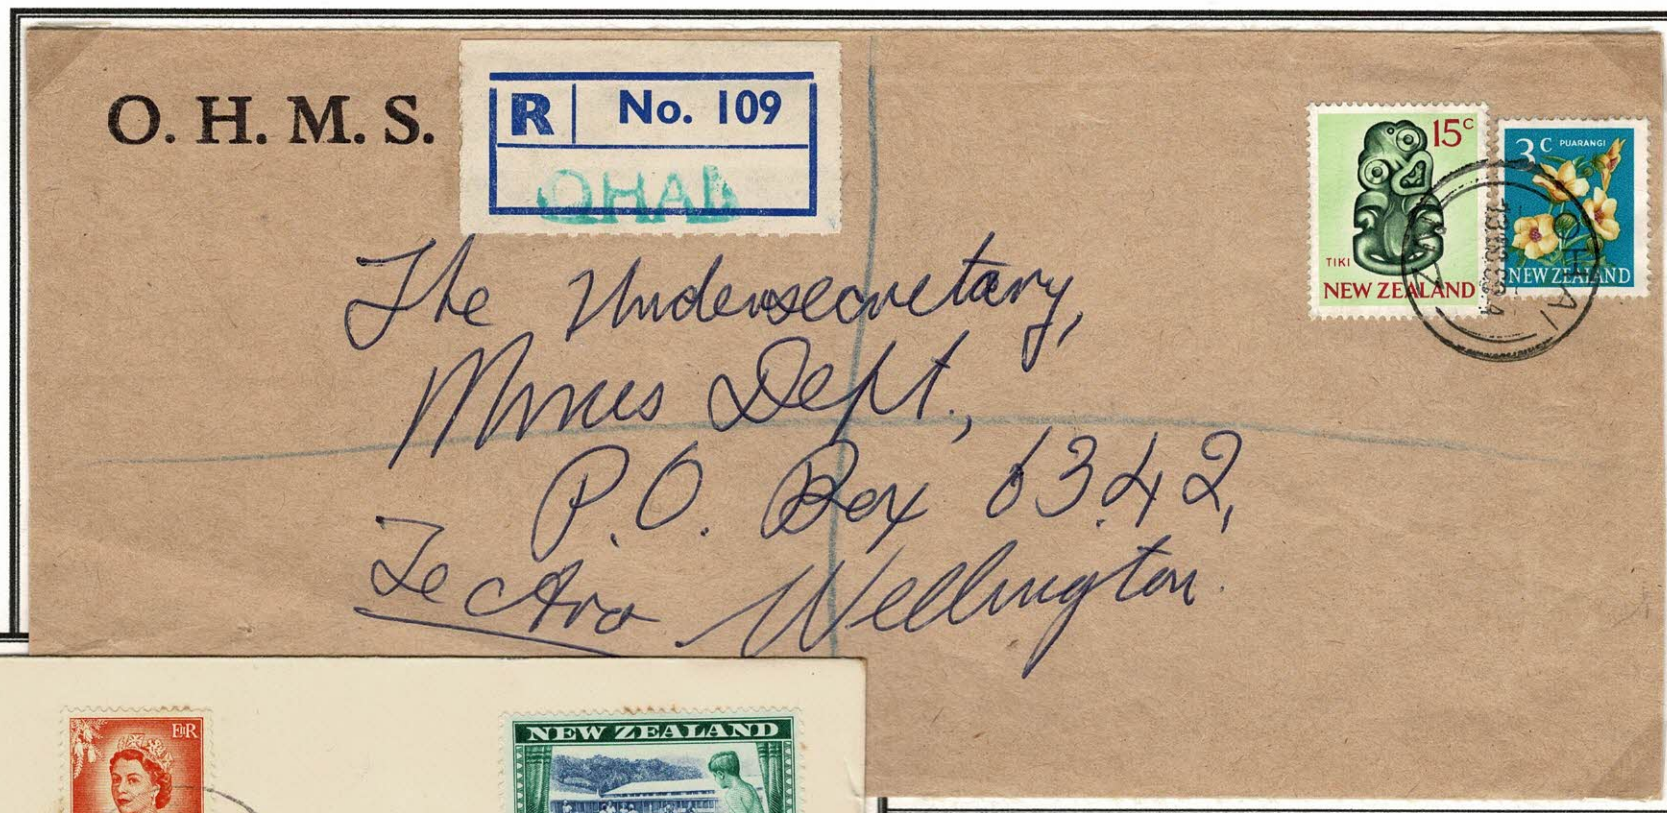 O. H. M. S.
R No. 109
OHAI
15c
TIKI
NEW ZEALAND
3c PUARANGI
NEW ZEALAND
OHAI
N.Z
The Undersecretary,
Mines Dept.,
P.O. Box 6342,
Te Aro Wellington.
EIIR
NEW ZEALAND